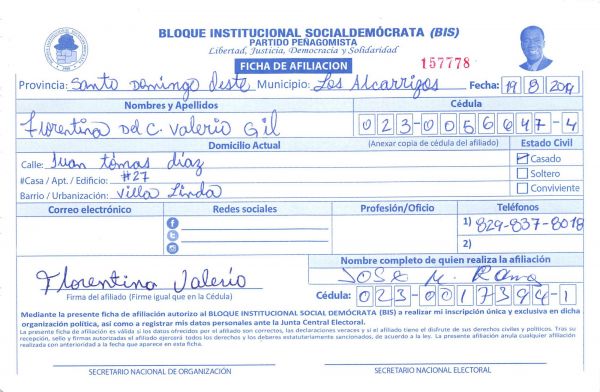 BLOQUE INSTITUCIONAL SOCIALDEMÓCRATA (BIS)
PARTIDO PEÑAGOMISTA
Libertad, Justicia, Democracia y Solidaridad
FICHA DE AFILIACION
157778
Provincia: Santo Domingo Oeste Municipio: Los Alcarrizos Fecha: 19 8 2019
Nombres y Apellidos Cédula
Florentina Del C. Valerio Gil 023-0056647-4
Domicilio Actual (Anexar copia de cédula del afiliado) Estado Civil
Calle: Juan tómas díaz Casado
#Casa / Apt. / Edificio: #27 Soltero
Barrio / Urbanización: Villa Linda Conviviente
Correo electrónico Redes sociales Profesión/Oficio Teléfonos
1) 829-837-8018
2)
Nombre completo de quien realiza la afiliación
Florentina Valerio JOSE M. Ramo
Firma del afiliado (Firme igual que en la Cédula) Cédula: 023-0017394-1
Mediante la presente ficha de afiliación autorizo al BLOQUE INSTITUCIONAL SOCIAL DEMÓCRATA (BIS) a realizar mi inscripción única y exclusiva en dicha
organización política, así como a registrar mis datos personales ante la Junta Central Electoral.
La presente ficha de afiliación es válida si los datos ofrecidos por el afiliado son correctos, las declaraciones veraces y si el afiliado tiene el disfrute de sus derechos civiles y políticos. Tras su
recepción, sello y firmas autorizadas el afiliado ejercerá todos los derechos y los deberes estatutariamente sancionados, de acuerdo a la ley. La presente afiliación anula cualquier afiliación
realizada con anterioridad a la fecha que aparece en esta ficha.
SECRETARIO NACIONAL DE ORGANIZACIÓN SECRETARIO NACIONAL ELECTORAL